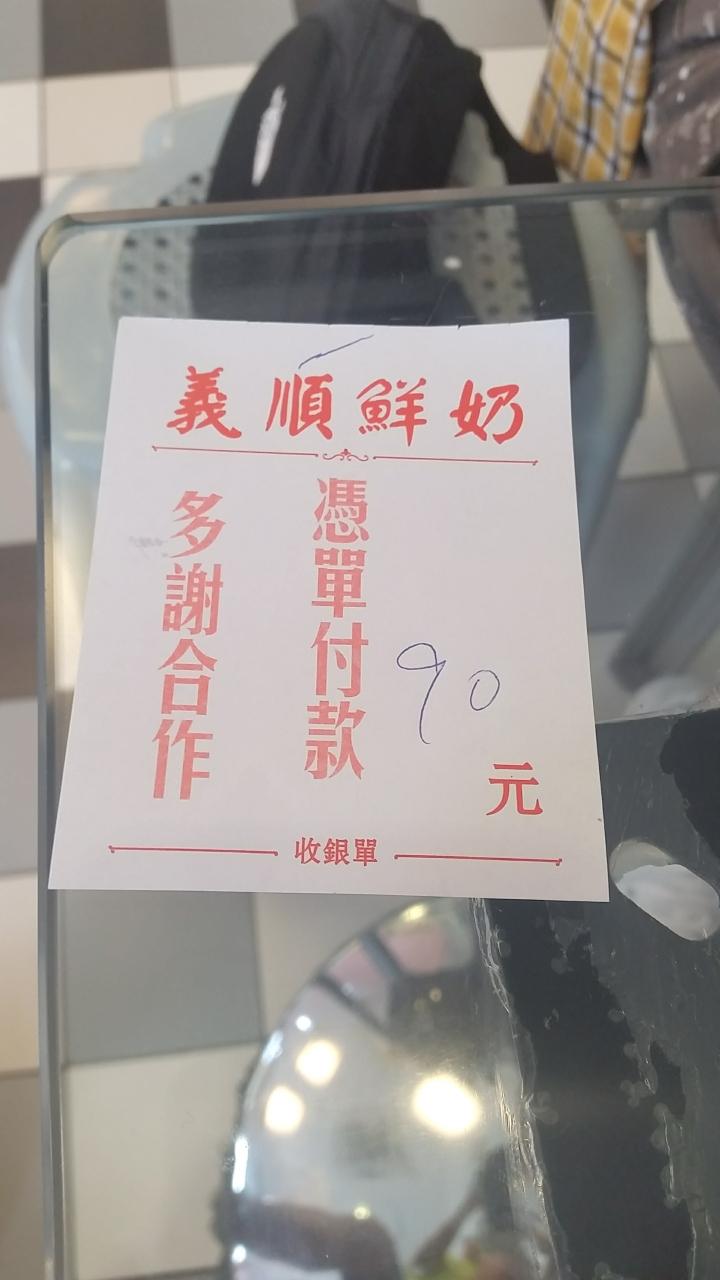 義順鮮奶
憑單付款
多謝合作
90
元
收銀單